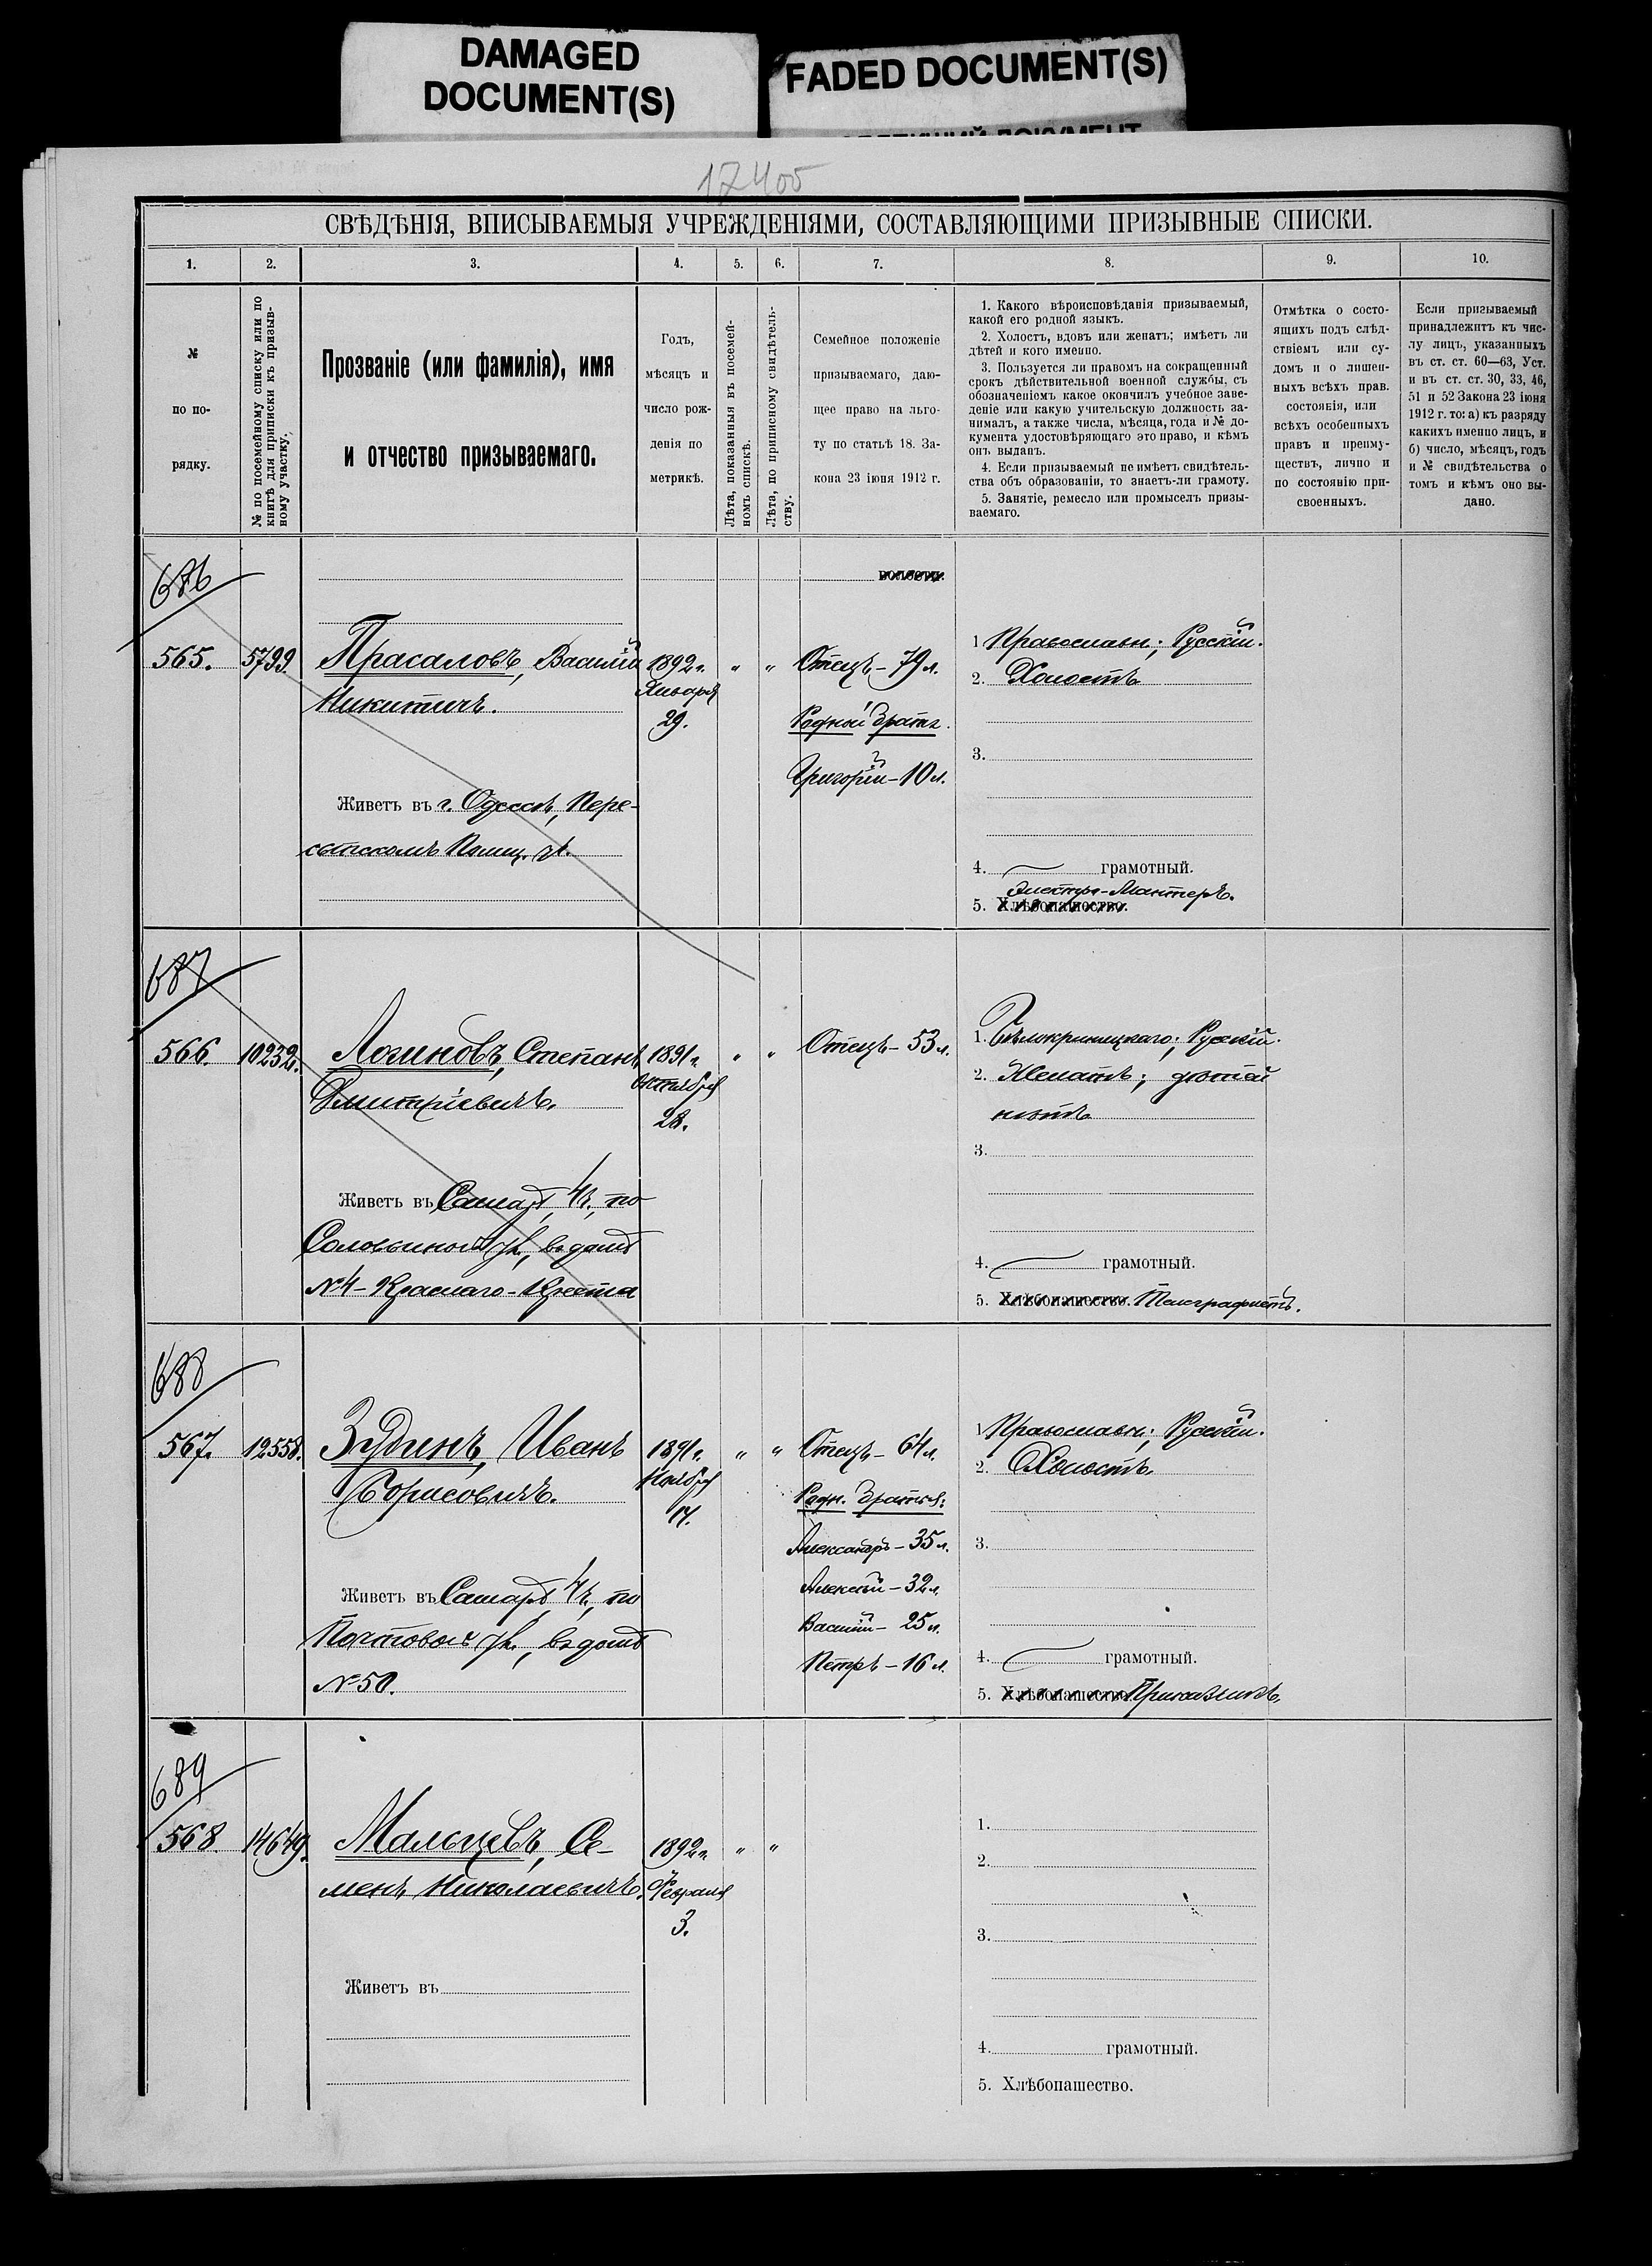 DAMAGED
DOCUMENT(S)
FADED DOCUMENT(S)
17405
СВѢДѢНІЯ, ВПИСЫВАЕМЫЯ УЧРЕЖДЕНІЯМИ, СОСТАВЛЯЮЩИМИ ПРИЗЫВНЫЕ СПИСКИ.
1. 2. 3. 4. 5. 6. 7. 8. 9. 10.
№
по по-
рядку.
№ по посемейному списку или по
книгѣ для приписки къ призыв-
ному участку.
Прозваніе (или фамилія), имя
и отчество призываемаго.
Годъ,
мѣсяцъ и
число рож-
денія по
метрикѣ.
Лѣта, показанныя въ посемей-
номъ спискѣ.
Лѣта, по приписному свидѣтель-
ству.
Семейное положеніе
призываемаго, даю-
щее право на льго-
ту по статьѣ 18. За-
кона 23 іюня 1912 г.
1. Какого вѣроисповѣданія призываемый,
какой его родной языкъ.
2. Холостъ, вдовъ или женатъ; имѣетъ ли
дѣтей и кого именно.
3. Пользуется ли правомъ на сокращенный
срокъ дѣйствительной военной службы, съ
обозначеніемъ какое окончилъ учебное заве-
деніе или какую учительскую должность за-
нималъ, а также числа, мѣсяца, года и № до-
кумента удостовѣряющаго это право, и кѣмъ
онъ выданъ.
4. Если призываемый не имѣетъ свидѣтель-
ства объ образованіи, то знаетъ-ли грамоту.
5. Занятіе, ремесло или промыселъ призы-
ваемаго.
Отмѣтка о состо-
ящихъ подъ слѣд-
ствіемъ или су-
домъ и о лишен-
ныхъ всѣхъ прав.
состоянія, или
всѣхъ особенныхъ
правъ и преиму-
ществъ, лично и
по состоянію при-
своенныхъ.
Если призываемый
принадлежитъ къ чис-
лу лицъ, указанныхъ
въ ст. ст. 60—63, Уст.
и въ ст. ст. 30, 33, 46,
51 и 52 Закона 23 іюня
1912 г. то: а) къ разряду
какихъ именно лицъ, и
б) число, мѣсяцъ, годъ
и № свидѣтельства о
томъ и кѣмъ оно вы-
дано.
686
волости.
565. 5799 Прасаловъ, Василій
Никитичъ.
1892 г.
Января
29.
" "
Отецъ - 79 л.
Родной братъ
Григорій - 10 л.
Живетъ въ г. Одессѣ, Пере-
сыпскомъ Полиц. уч.
1 Православн.; Русскій.
2. Холостъ
3.
4. грамотный.
Электро-Мантеръ.
5. Хлѣбопашество.
687
566. 10232. Логиновъ, Степанъ
Дмитріевичъ.
1891 г.
Октября
28.
" "
Отецъ - 53 л.
Живетъ въ Самарѣ, 4 ч., по
Соловьиной ул., въ домѣ
№ 4 - Краснаго - Креста
1. Бѣлокриницкаго; Русскій.
2. Женатъ; дѣтей
нѣтъ
3.
4. грамотный.
5. Хлѣбопашество. Телеграфистъ.
688
567. 12558. Зудинъ, Иванъ
Борисовичъ.
1891 г.
Ноября
14.
" "
Отецъ - 64 л.
Родн. братья:
Александръ - 35 л.
Алексѣй - 32 л.
Василій - 25 л.
Петръ - 16 л.
Живетъ въ Самарѣ, 4 ч., по
Почтовой ул., въ домѣ
№ 50.
1 Православн.; Русскій.
2. Холостъ
3.
4. грамотный.
5. Хлѣбопашество Прикащикъ.
689
568. 14649. Мальцевъ, Се-
менъ Николаевичъ.
1892 г.
Февраля
3.
" "
Живетъ въ
1.
2.
3.
4. грамотный.
5. Хлѣбопашество.